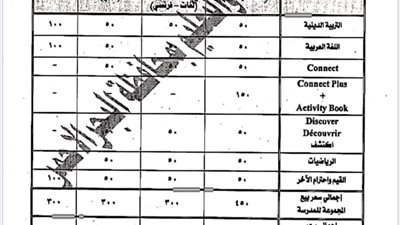 (لغات - فرنسي)
التربية الدينية ٥٠ ٥٠ ٥٠ ١٠٠
اللغة العربية ٥٠ ٥٠ ٥٠ ١٠٠
Connect ٥٠ ٥٠ ٥٠ -
Connect Plus
+ ١٥٠ - -
Activity Book
Discover
Découvrir ٥٠ ٥٠ ٥٠ -
اكتشف
الرياضيات ٥٠ ٥٠ ٥٠
القيم واحترام الآخر ٥٠ ٥٠ ٥٠ ١٠٠
إجمالي سعر بيع ٤٥٠ ٣٠٠ ٣٠٠ ٣٠٠
المجموعة للمدرسة